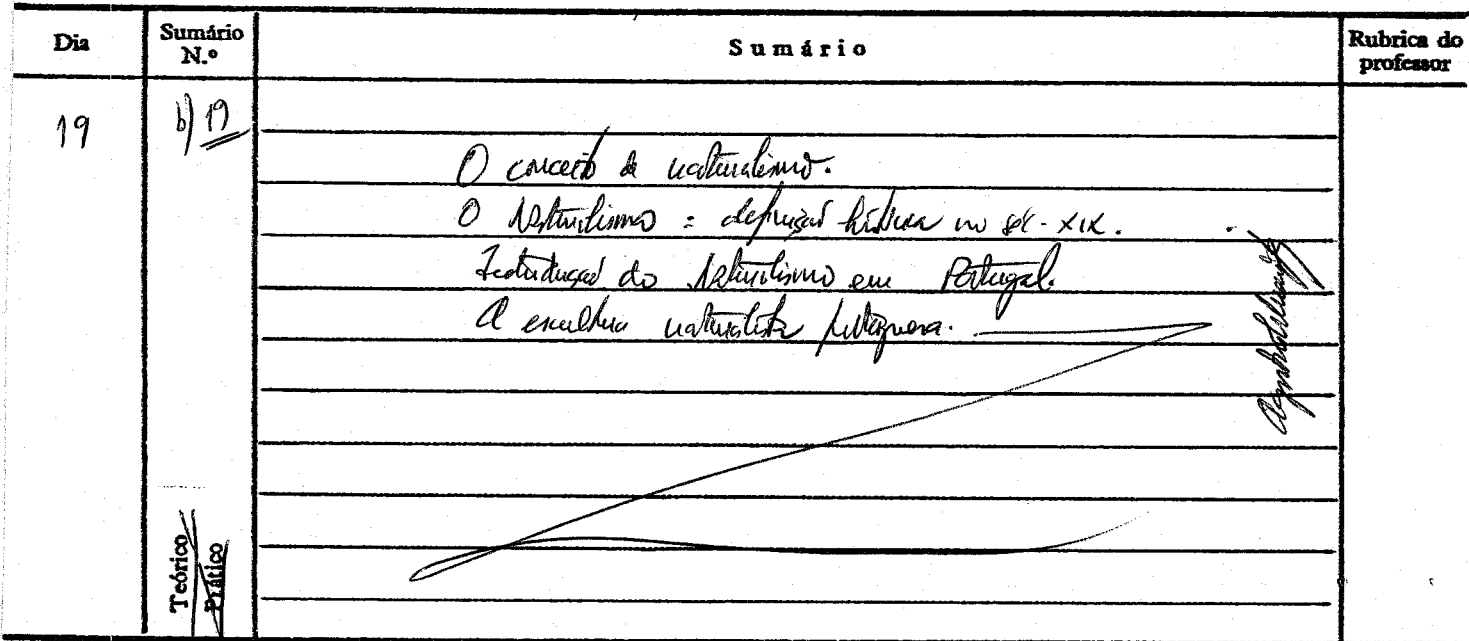 Dia
Sumário N.º
Sumário
Rubrica do professor
19
b) 19
O conceito de naturalismo.
O Naturalismo: definição histórica no séc. XIX.
Introdução do Naturalismo em Portugal.
A escultura naturalista portuguesa.
Teórico
Prático